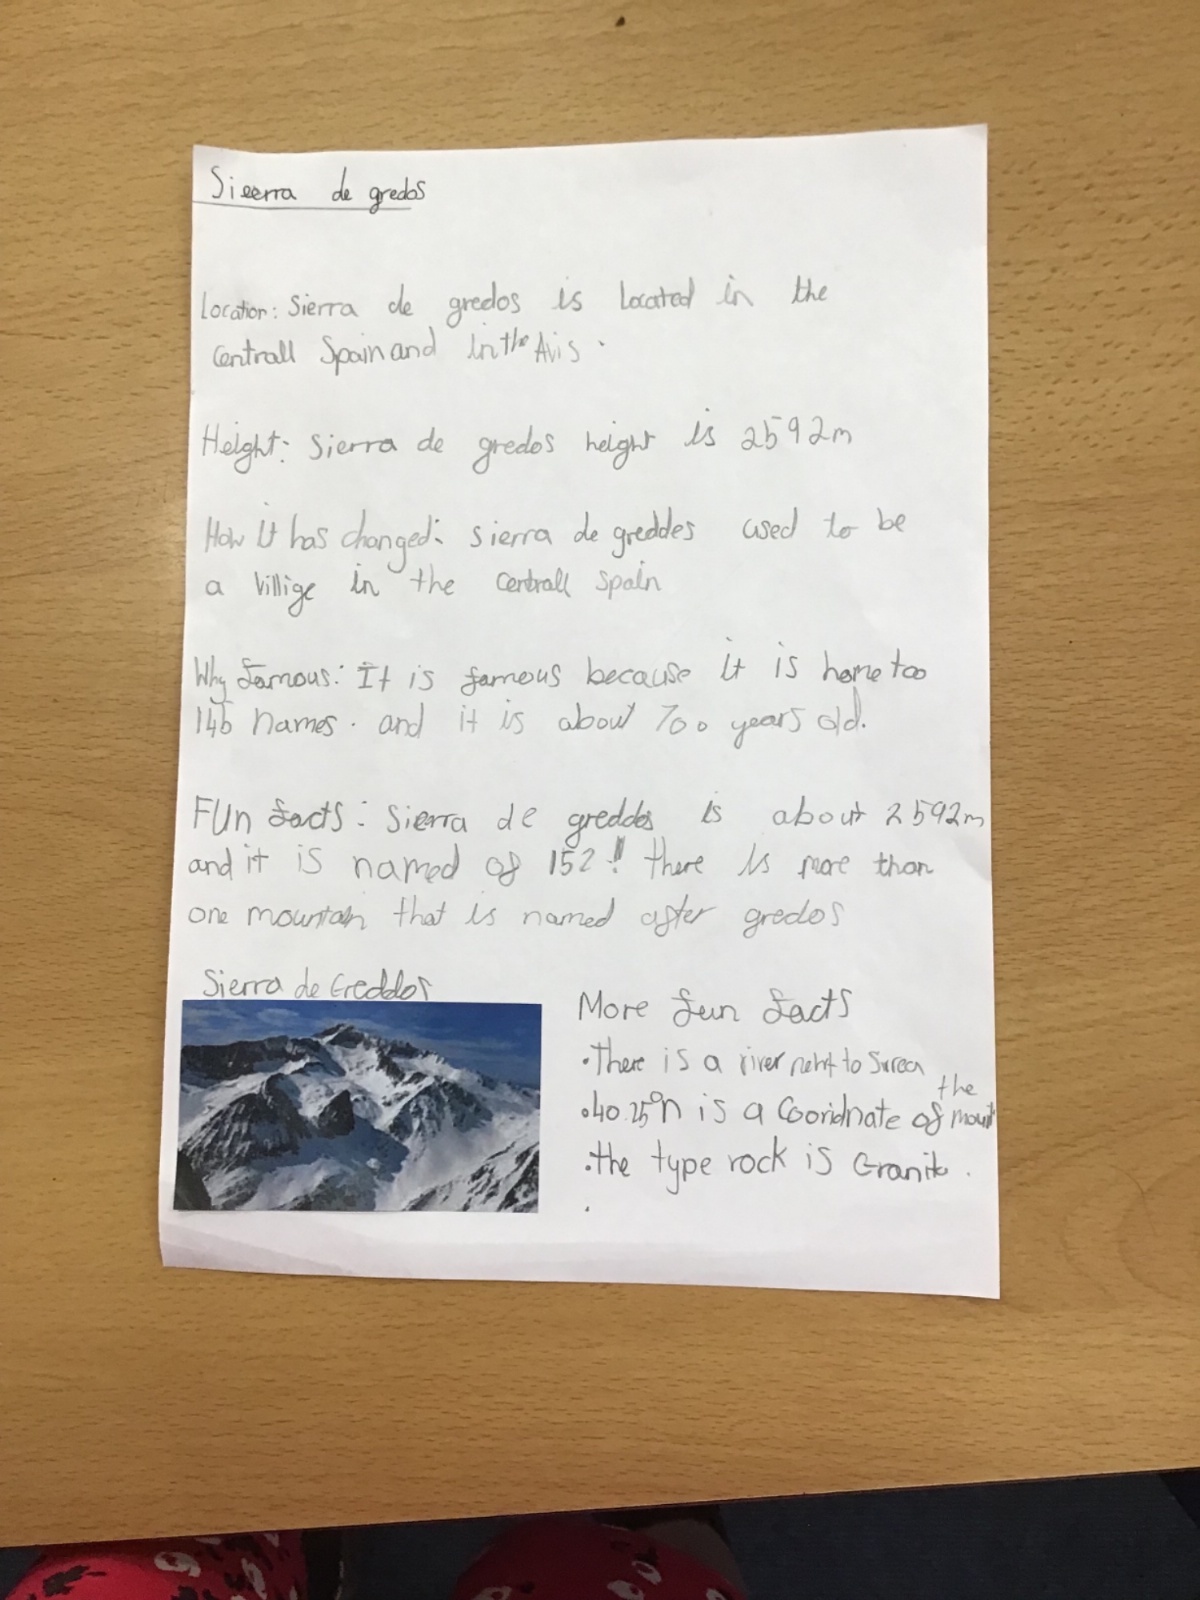 Sieerra de gredos
Location: Sierra de gredos is located in the
Centrall Spain and in the Avis.
Height: Sierra de gredos height is 2592m
How it has changed: Sierra de greddes used to be
a Villige in the Centrall Spain
Why famous: It is famous because it is home too
146 names. and it is about 700 years old.
FUn facts: Sierra de greddos is about 2592m
and it is named of 152! there is more than
one mountain that is named after gredos
Sierra de Greddos
More fun facts
•There is a river next to
•40.25°n is a Cooridnate of the mount
•the type rock is Granite.